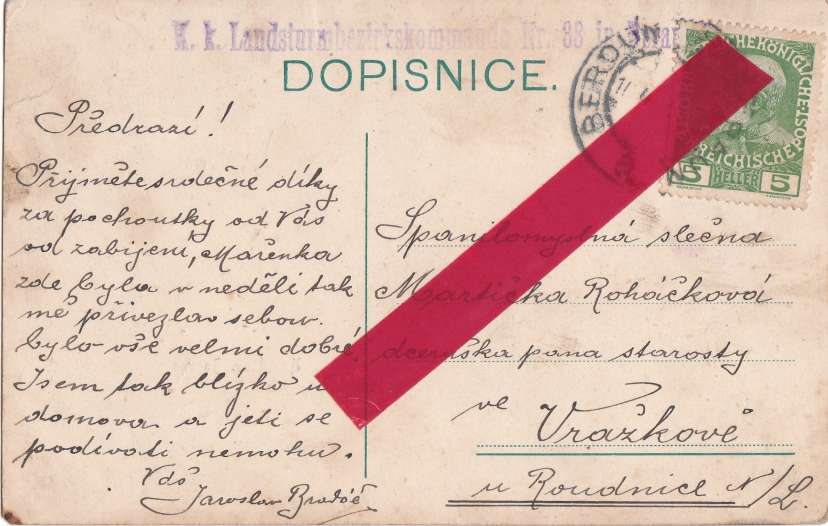 K. k. Landsturmbezirkskommando Nr. 38 in
DOPISNICE.
BEROUN
5 HELLER 5
Předrazí!
Prijměte srdečné díky
za pochoutky od Vás
od zabijení, Mařenka
zde byla v neděli tak
mě přivezla sebou.
bylo vše velmi dobré.
Jsem tak blízko u
domova a jeti se
podívati nemohu.
Váš
Jaroslav
Spanilomyslná slečna
Martička Roháčková
dceruška pana starosty
ve Vražkově
u Roudnice N/L.